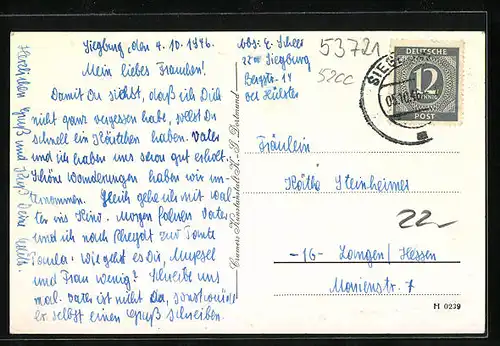 Siegburg, den 4.10.1946.
Mein liebes Frauchen!
Damit Du siehst, daß ich Dich
nicht ganz vergessen habe, sollst Du
schnell ein Kärtchen haben. Vater
und ich haben uns schon gut erholt.
Schöne Wanderungen haben wir un-
ternommen. Gleich gehe ich mit Va-
ter ins Kino. Morgen fahren Vater
und ich nach Rheydt zur Tante
Wie geht es Dir,
und Frau Schreibe uns
mal. Vater ist nicht da, sonst würde
er selbst einen Gruß schreiben.
Herzlichen Gruß und Deine
Cramers Kunstanstalt K.-G. Dortmund
Abs: E.
22 Siegburg
Bergstr. 14
bei
53721
5200
DEUTSCHE
12
PFENNIG
POST
Fräulein
Käthe Steinheimer
22-
-16- Langen/Hessen
Marienstr. 7
H 0239